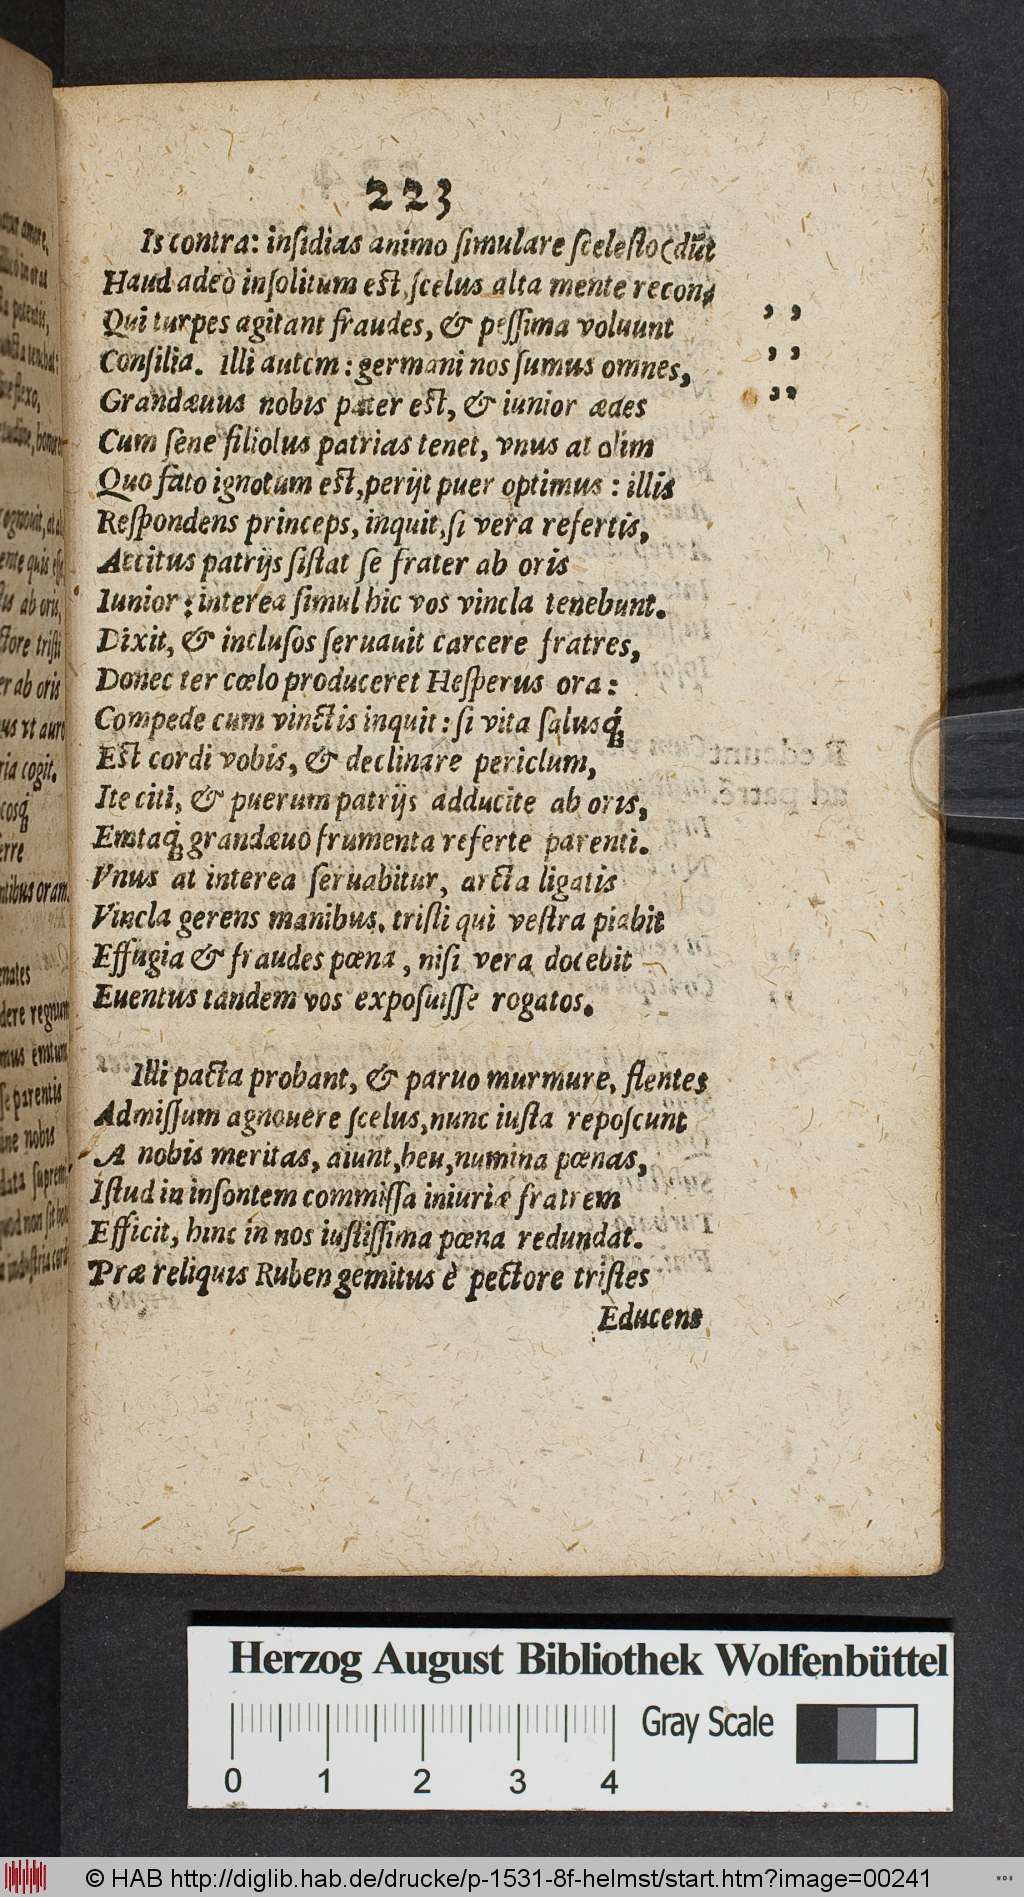 223
Is contra: insidias animo simulare scelesto (dūt
Haud adeò insolitum est, scelus alta mente recon-
Qui turpes agitant fraudes, & pessima voluunt ,,
Consilia. Illi autem: germani nos sumus omnes, ,,
Grandæuus nobis pater est, & iunior ædes ,,
Cum sene filiolus patrias tenet, vnus at olim
Quo fato ignotum est, perijt puer optimus: illis
Respondens princeps, inquit, si vera refertis,
Accitus patrijs sistat se frater ab oris
Iunior: interea simul hic vos vincla tenebunt.
Dixit, & inclusos seruauit carcere fratres,
Donec ter cœlo produceret Hesperus ora:
Compede cum vinctis inquit: si vita salusq́;
Est cordi vobis, & declinare periclum,
Ite citi, & puerum patrijs adducite ab oris,
Emtaq́; grandæuo frumenta referte parenti.
Vnus at interea seruabitur, arcta ligatis
Vincla gerens manibus, tristi qui vestra piabit
Effugia & fraudes pœna, nisi vera docebit
Euentus tandem vos exposuisse rogatos.
Illi pacta probant, & paruo murmure, flentes
Admissum agnouere scelus, nunc iusta reposcunt
A nobis meritas, aiunt, heu, numina pœnas,
Istud in insontem commissa iniuriæ fratrem
Efficit, hinc in nos iustissima pœna redundat.
Præ reliquis Ruben gemitus è pectore tristes
Educens
Herzog August Bibliothek Wolfenbüttel
Gray Scale
0 1 2 3 4
© HAB http://diglib.hab.de/drucke/p-1531-8f-helmst/start.htm?image=00241